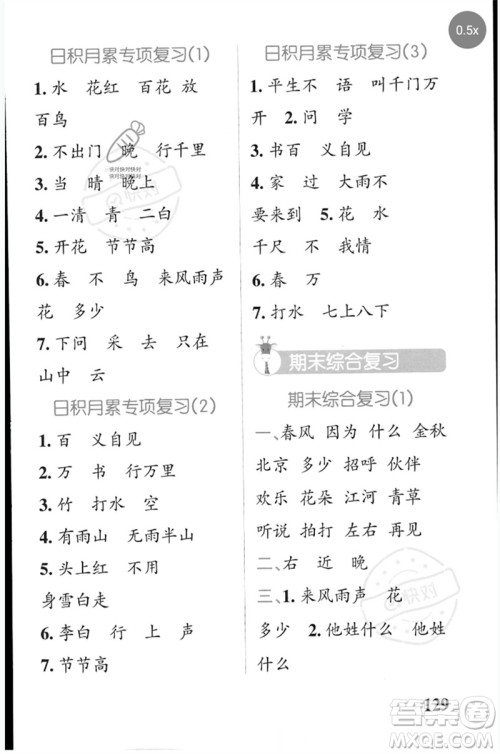 0.5x
日积月累专项复习(1)
1.水 花红 百花 放
百鸟
2.不出门 晚 行千里
3.当 晴 晚上
4.一清 青 二白
5.开花 节节高
6.春 不 鸟 来风雨声
花 多少
7.下问 来 去 只在
山中 云
日积月累专项复习(2)
1.百 义自见
2.万 书 行万里
3.竹 打水 空
4.有雨山 无雨半山
5.头上红 不用
身雪白走
6.李白 行 上 声
7.节节高
日积月累专项复习(3)
1.平生不 语 叫千门万
开 2.问 学
3.书百 义自见
4.家 过 大雨不
要来到 5.花 水
千尺 不 我情
6.春 万
7.打水 七上八下
期末综合复习
期末综合复习(1)
一、春风 因为 什么 金秋
北京 多少 招呼 伙伴
欢乐 花朵 江河 青草
听说 拍打 左右 再见
二、右 近 晚
三、1.来风雨声 花
多少 2.他姓什么 他姓
什么
129